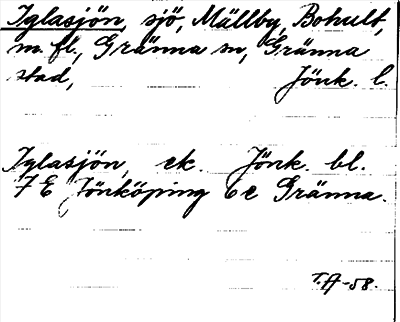 Iglasjön, sjö, Mällby, Bohult,
m. fl., Gränna sn, Gränna
stad, Jönk. l.
Iglasjön, ek. Jönk. bl.
7 E Jönköping 6 e Gränna.
T.A -58.